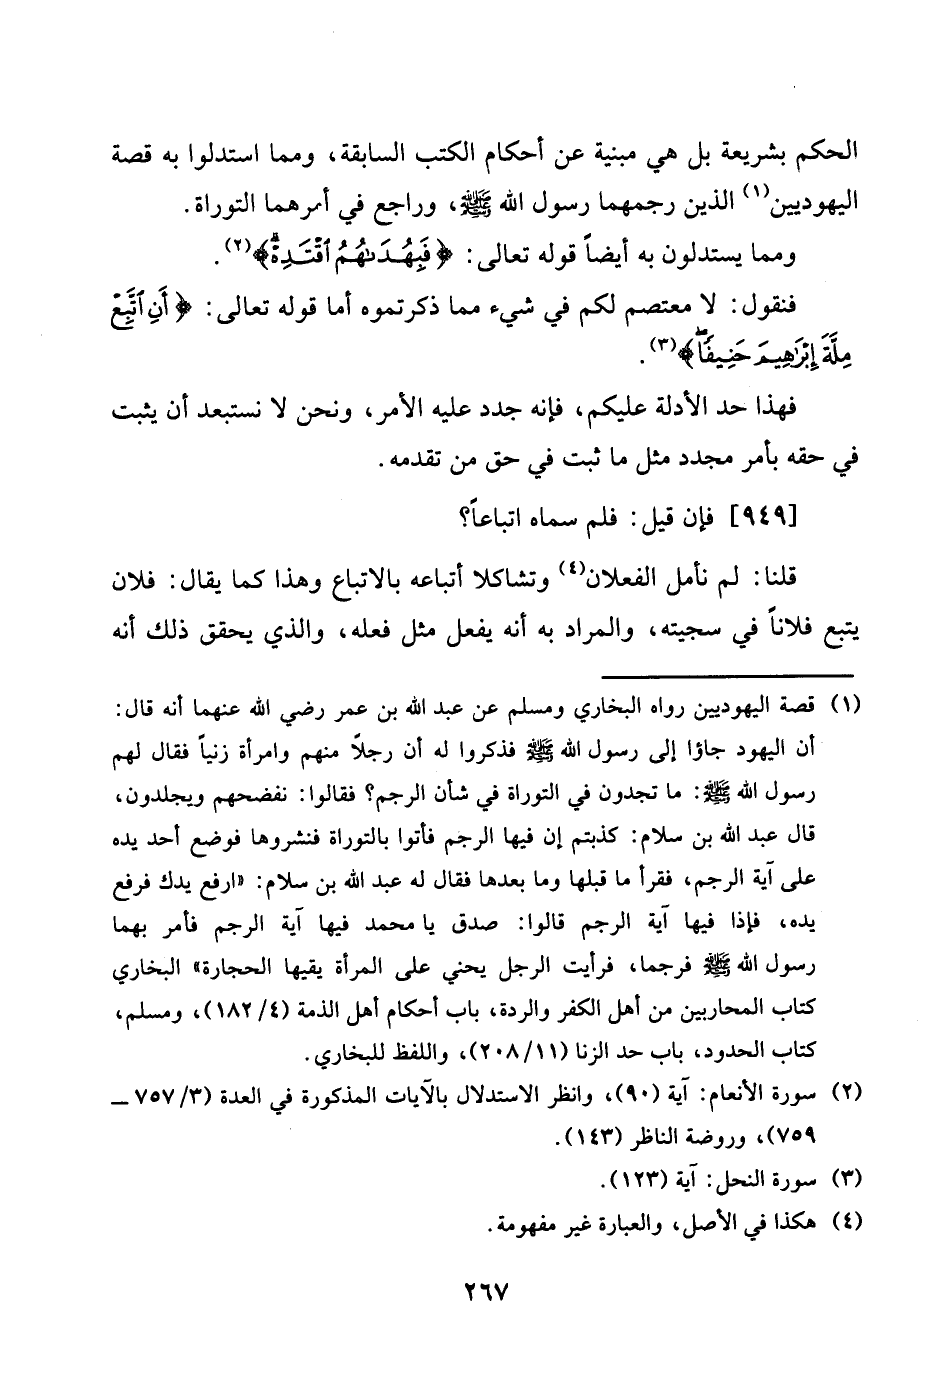 الحكم بشريعة بل هي مبنية عن أحكام الكتب السابقة، ومما استدلوا به قصة
اليهوديين(١) الذين رجمهما رسول الله ﷺ، وراجع في أمرهما التوراة.
ومما يستدلون به أيضاً قوله تعالى: ﴿فَبِهُدَىٰهُمُ ٱقْتَدِهْ﴾(٢).
فنقول: لا معتصم لكم في شيء مما ذكرتموه أما قوله تعالى: ﴿أَنِ ٱتَّبِعْ
مِلَّةَ إِبْرَٰهِيمَ حَنِيفًا﴾(٣).
فهذا حد الأدلة عليكم، فإنه جدد عليه الأمر، ونحن لا نستبعد أن يثبت
في حقه بأمر مجدد مثل ما ثبت في حق من تقدمه.
[٩٤٩] فإن قيل: فلم سماه اتباعاً؟
قلنا: لم نأمل الفعلان(٤) وتشاكلا أتباعه بالاتباع وهذا كما يقال: فلان
يتبع فلاناً في سجيته، والمراد به أنه يفعل مثل فعله، والذي يحقق ذلك أنه
(١) قصة اليهوديين رواه البخاري ومسلم عن عبد الله بن عمر رضي الله عنهما أنه قال:
أن اليهود جاؤا إلى رسول الله ﷺ فذكروا له أن رجلاً منهم وامرأة زنياً فقال لهم
رسول الله ﷺ: ما تجدون في التوراة في شأن الرجم؟ فقالوا: نفضحهم ويجلدون،
قال عبد الله بن سلام: كذبتم إن فيها الرجم فأتوا بالتوراة فنشروها فوضع أحد يده
على آية الرجم، فقرأ ما قبلها وما بعدها فقال له عبد الله بن سلام: «ارفع يدك فرفع
يده، فإذا فيها آية الرجم قالوا: صدق يا محمد فيها آية الرجم فأمر بهما
رسول الله ﷺ فرجما، فرأيت الرجل يحني على المرأة يقيها الحجارة» البخاري
كتاب المحاربين من أهل الكفر والردة، باب أحكام أهل الذمة (١٨٢/٤)، ومسلم،
كتاب الحدود، باب حد الزنا (٢٠٨/١١)، واللفظ للبخاري.
(٢) سورة الأنعام: آية (٩٠)، وانظر الاستدلال بالآيات المذكورة في العدة (٧٥٧/٣ ـ
٧٥٩)، وروضة الناظر (١٤٣).
(٣) سورة النحل: آية (١٢٣).
(٤) هكذا في الأصل، والعبارة غير مفهومة.
٢٦٧